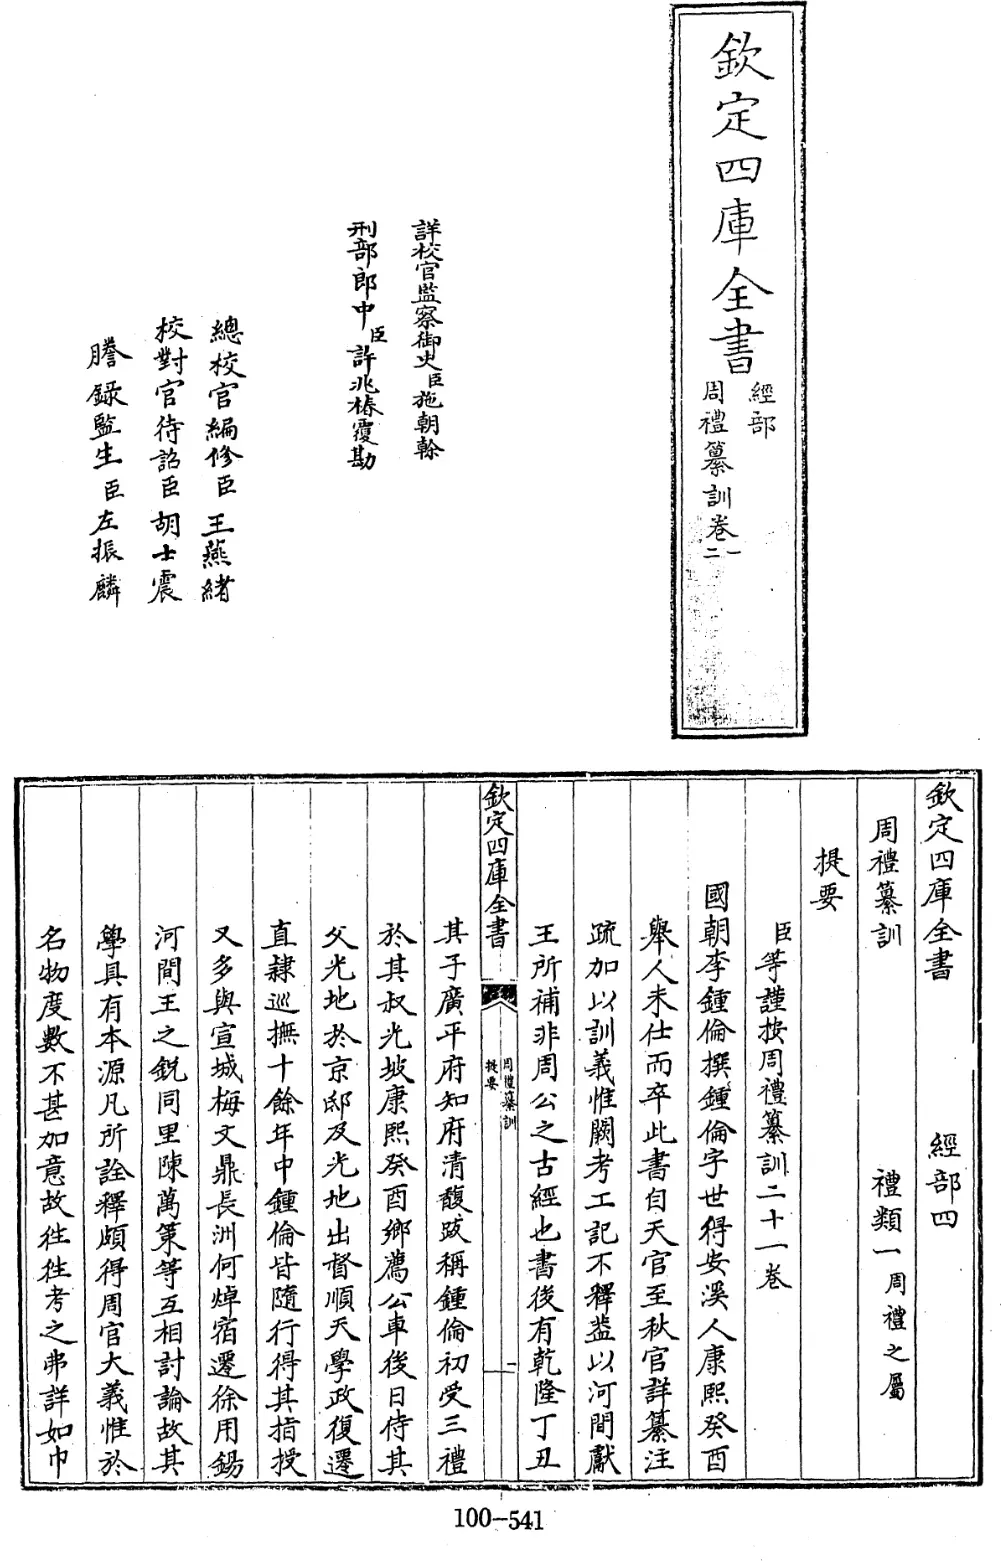 欽定四庫全書
經部
周禮纂訓卷一
二
詳校官監察御史臣施朝幹
刑部郎中臣許兆椿覆勘
總校官編修臣王燕緒
校對官待詔臣胡士震
謄錄監生臣左振麟
欽定四庫全書 經部四
周禮纂訓 禮類一周禮之屬
提要
臣等謹按周禮纂訓二十一卷
國朝李鍾倫撰鍾倫字世得安溪人康熙癸酉
舉人未仕而卒此書自天官至秋官詳纂注
疏加以訓義惟闕考工記不釋蓋以河間獻
王所補非周公之古經也書後有乾隆丁丑
欽定四庫全書
周禮纂訓
提要
一
其子廣平府知府清馥跋稱鍾倫初受三禮
於其叔光坡康熙癸酉鄉薦公車後日侍其
父光地於京邸及光地出督順天學政復遷
直隸巡撫十餘年中鍾倫皆隨行得其指授
又多與宣城梅文鼎長洲何焯宿遷徐用錫
河間王之銳同里陳萬策等互相討論故其
學具有本源凡所詮釋頗得周官大義惟於
名物度數不甚加意故往往考之弗詳如巾
100-541